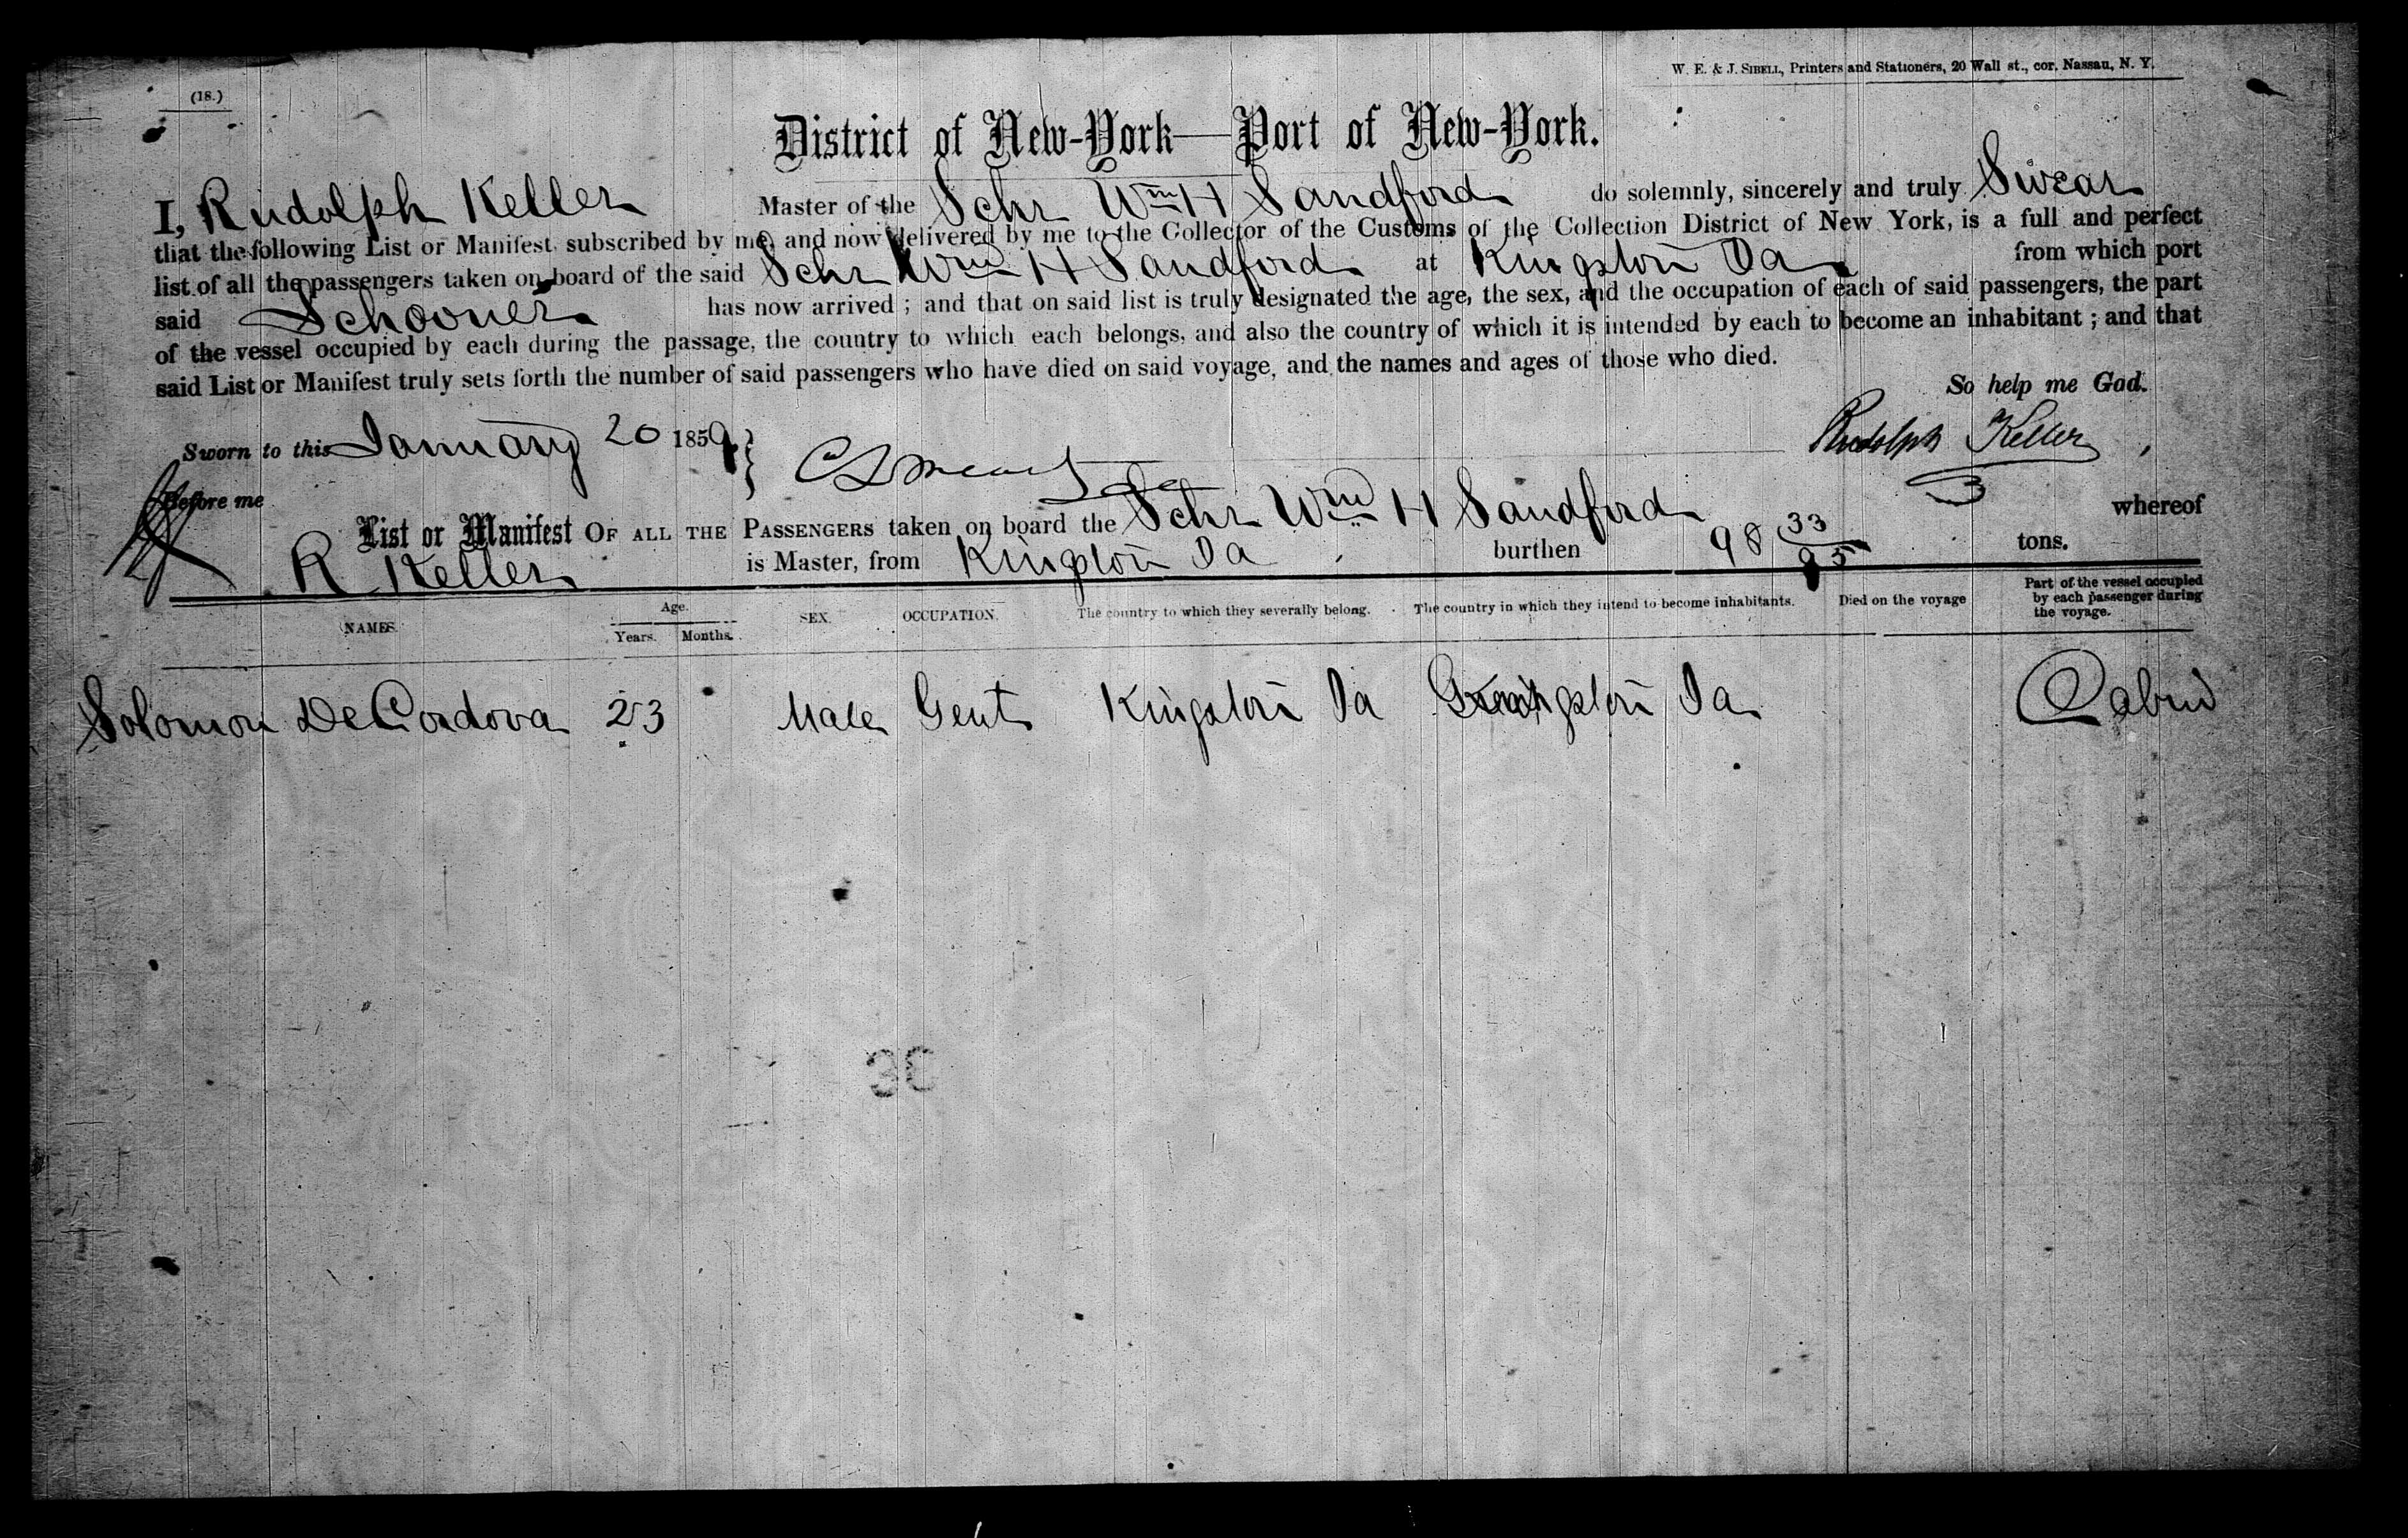 W. E. & J. SIBELL, Printers and Stationers, 20 Wall st., cor. Nassau, N. Y.
(18.)
District of New-York—Port of New-York.
I, Rudolph Keller Master of the Schr Wm H Sandford do solemnly, sincerely and truly Swear
that the following List or Manifest, subscribed by me, and now delivered by me to the Collector of the Customs of the Collection District of New York, is a full and perfect
list of all the passengers taken on board of the said Schr Wm H Sandford at Kingston Ja from which port
said Schooner has now arrived ; and that on said list is truly designated the age, the sex, and the occupation of each of said passengers, the part
of the vessel occupied by each during the passage, the country to which each belongs, and also the country of which it is intended by each to become an inhabitant ; and that
said List or Manifest truly sets forth the number of said passengers who have died on said voyage, and the names and ages of those who died.
So help me God.
Sworn to this January 20 1859
Rudolph Keller
Before me
List or Manifest OF ALL THE PASSENGERS taken on board the Schr Wm H Sandford whereof
R Keller is Master, from Kingston Ja burthen 98 33/95 tons.
NAMES. Age. Years. Months. SEX. OCCUPATION. The country to which they severally belong. The country in which they intend to become inhabitants. Died on the voyage Part of the vessel occupied by each passenger during the voyage.
Solomon DeCordova 23 Male Gent Kingston Ja Kingston Ja Cabin
30